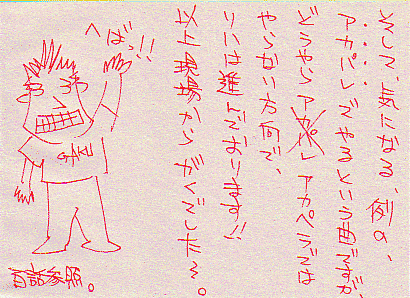 そして、気になる、例の、
アカパレでやるという曲ですが、
どうやらアカペラでは
やらない方向で、
りには進んでおります!!
以上現場からがくでした〜。
へばっ!!